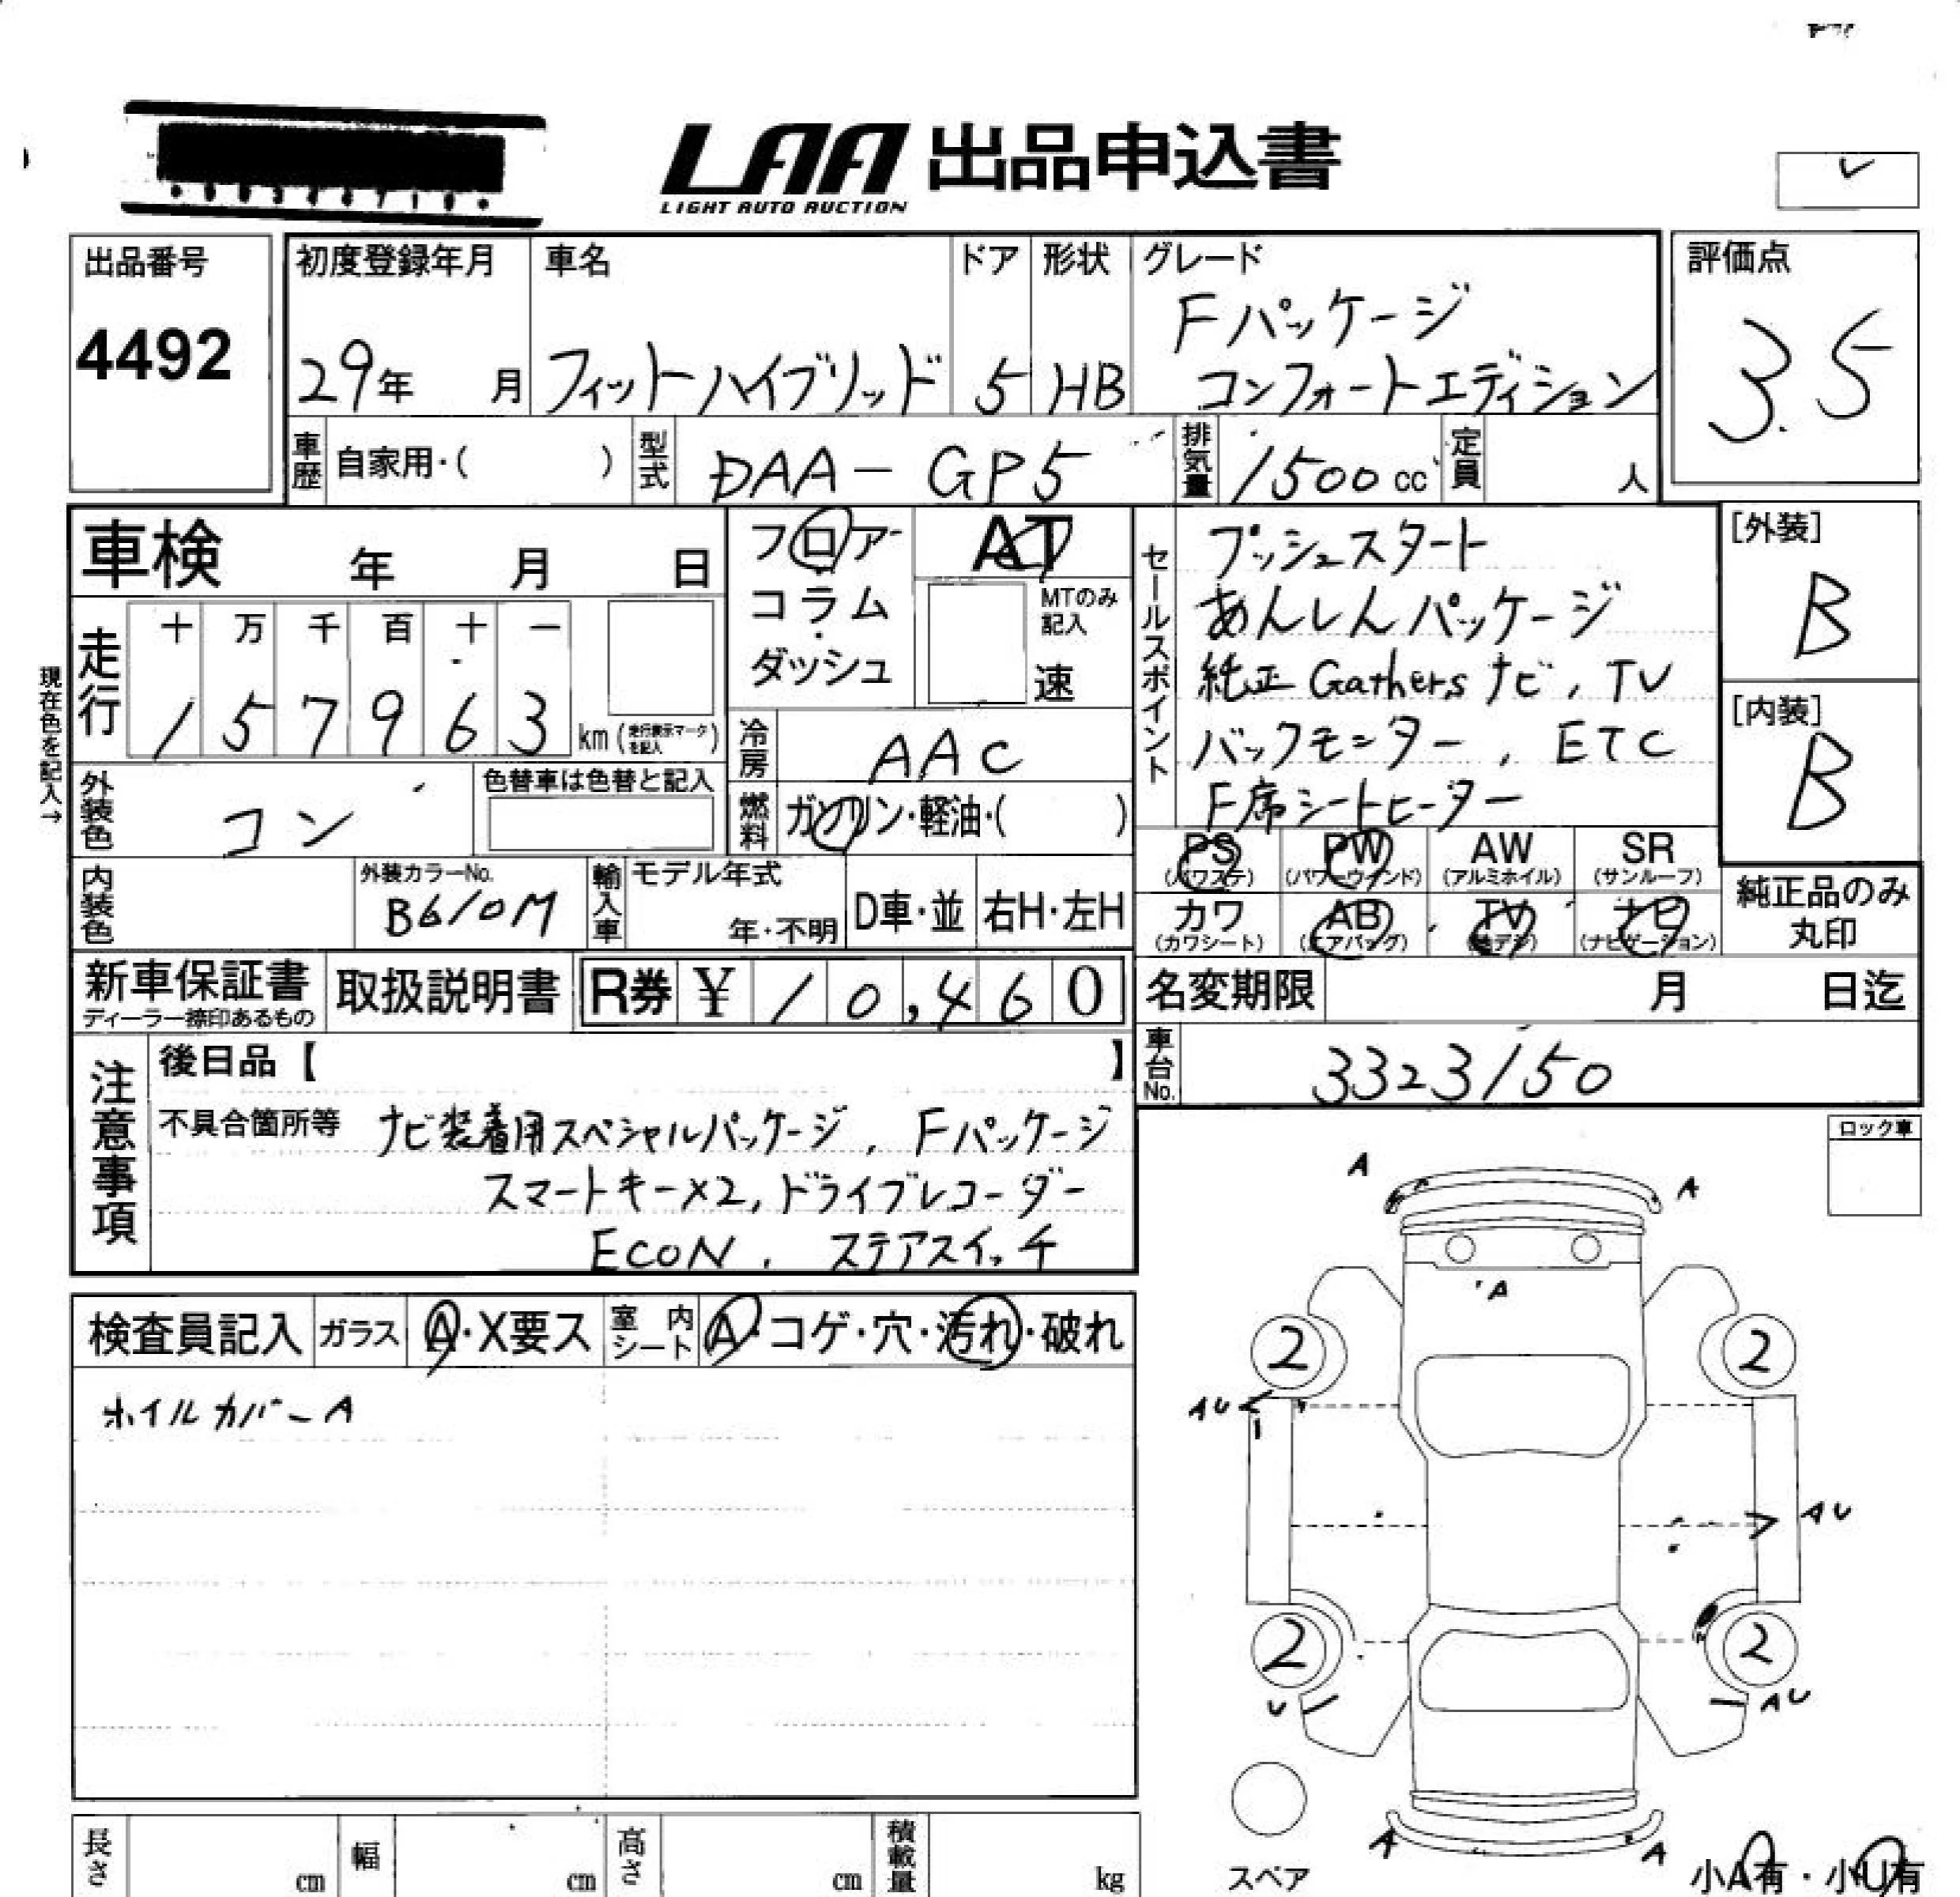 LAA 出品申込書
LIGHT AUTO AUCTION
出品番号
4492
初度登録年月
29年 月
車名
フィットハイブリッド
ドア
5
形状
HB
グレード
Fパッケージ
コンフォートエディション
評価点
3.5
車歴 自家用・( )
型式 DAA-GP5
排気量 1500cc
定員 人
車検 年 月 日
フロアー
・
コラム
・
ダッシュ
AT
MTのみ
記入
速
セールスポイント
プッシュスタート
あんしんパッケージ
純正Gathersナビ, TV
バックモニター, ETC
F席シートヒーター
[外装]
B
[内装]
B
現在色を記入→
走行
十 万 千 百 十 一
1 5 7 9 6 3 km (走行表示マークを記入)
冷房 AAC
外装色 コン
色替車は色替と記入
燃料 ガソリン・軽油・( )
内装色
外装カラーNo.
B610M
輸入車
モデル年式
年・不明
D車・並
右H・左H
PS
(パワステ)
PW
(パワーウインド)
AW
(アルミホイル)
SR
(サンルーフ)
カワ
(カワシート)
AB
(エアバッグ)
TV
(地デジ)
ナビ
(ナビゲーション)
純正品のみ
丸印
新車保証書
ディーラー捺印あるもの
取扱説明書
R券 ¥ 10,460
名変期限 月 日迄
車台No. 3323150
注意事項
後日品【 】
不具合箇所等 ナビ装着用スペシャルパッケージ, Fパッケージ
スマートキー×2, ドライブレコーダー
ECON, ステアスイッチ
ロック車
検査員記入
ガラス A・X要ス
室内シート A・コゲ・穴・汚れ・破れ
ホイルカバーA
A
A
A
2
2
AU
AU
2
2
U
AU
A
A
スペア
小A有・小U有
長さ cm
幅 cm
高さ cm
積載量 kg